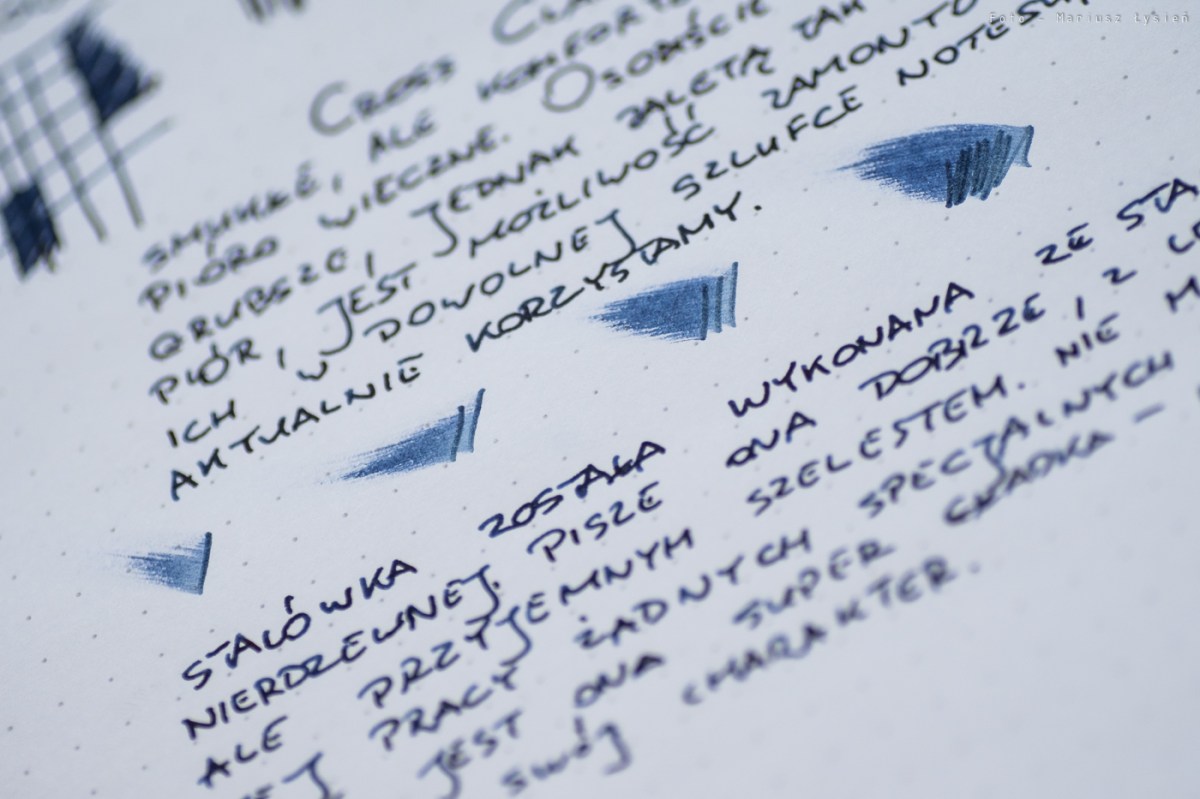 Foto - Mariusz Łysień
CROSS
SMUKŁE, ALE
PIÓRO WIECZNE. OSOBIŚCIE
GRUBSZE, JEDNAK ZALETĄ TAK
PIÓR, JEST MOŻLIWOŚĆ ZAMONTO
ICH W DOWOLNEJ SZLUFCE NOTESU
AKTUALNIE KORZYSTAMY.
STALÓWKA ZOSTAŁA WYKONANA ZE STA
NIERDZEWNEJ. PISZE ONA DOBRZE, Z
ALE PRZYJEMNYM SZELESTEM. NIE
PRACY ŻADNYCH SPECJALNYCH
JEST ONA SUPER GŁADKA -
SWÓJ CHARAKTER.